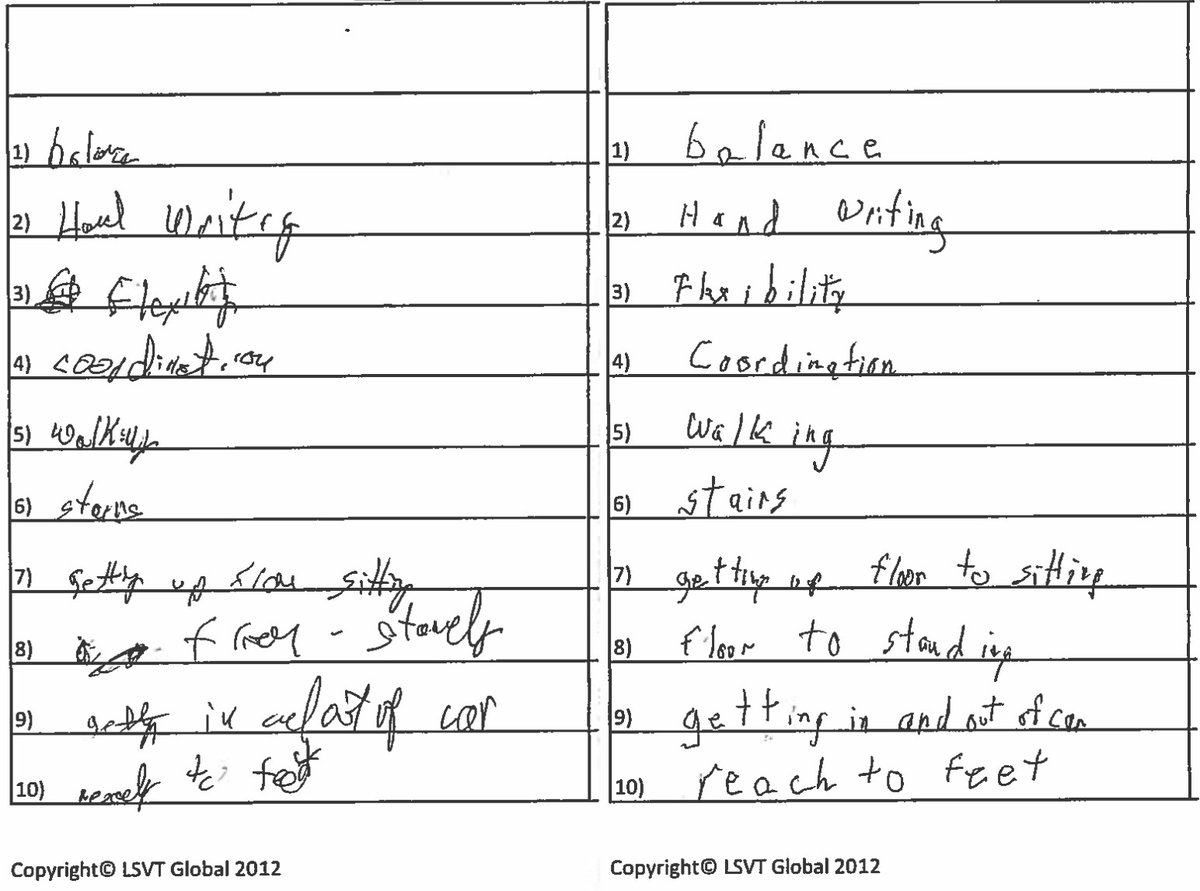 1) balance
2) Hand Writing
3) Flexibility
4) coordination
5) walking
6) stairs
7) getting up floor sitting
8) floor - standing
9) getting in and out of car
10) reach to feet
Copyright© LSVT Global 2012
1) balance
2) Hand Writing
3) Flexibility
4) Coordination
5) Walking
6) stairs
7) getting up floor to sitting
8) floor to standing
9) getting in and out of car
10) reach to feet
Copyright© LSVT Global 2012